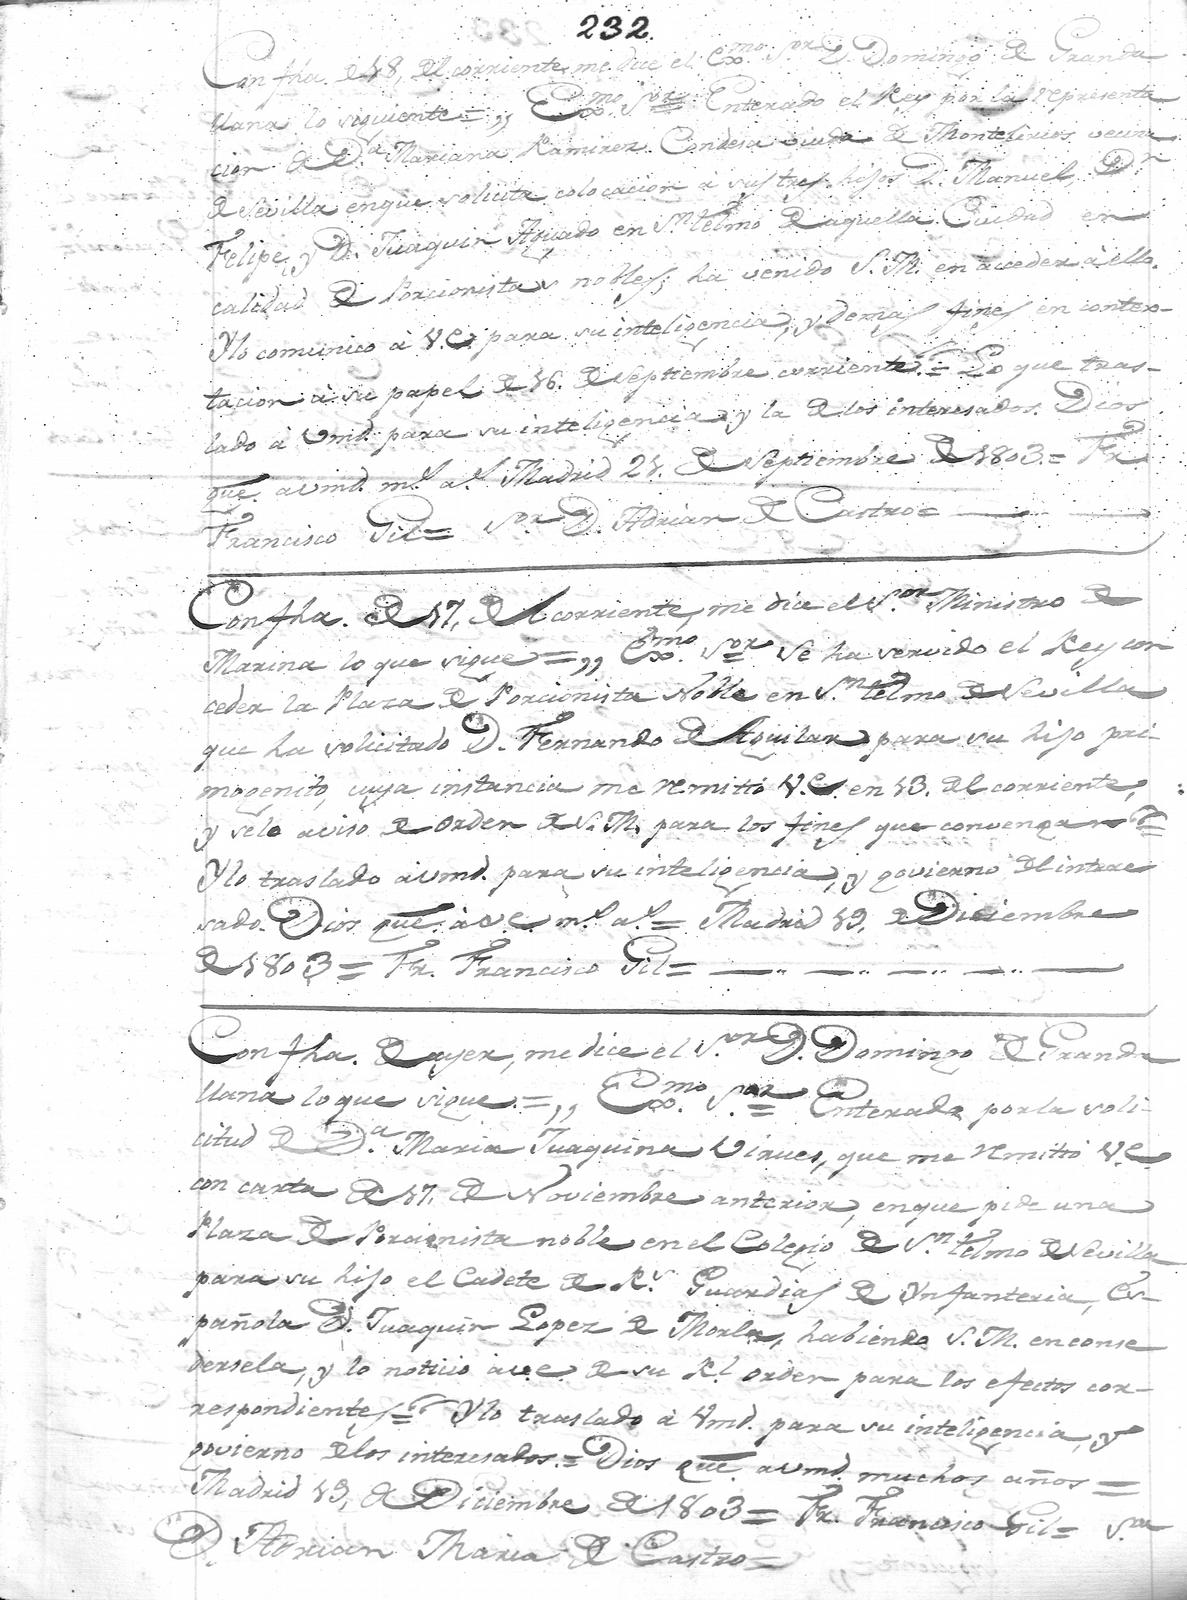 232.
Con fha. de 18, del corriente, me dice el Exmo. Sor. D. Domingo de Granda
llana lo siguiente =,, Exmo. Sor. = Enterado el Rey por la representa
cion de Da. Mariana Ramirez Condesa viuda de Montelirios vecina
de Sevilla en que solicita colocacion à sus tres hijos D. Manuel, Dn.
Felipe, y D. Juaquin Aguado en Sn. telmo de aquella Ciudad en
calidad de Porcionistas nobles; ha venido S. M. en acceder à ella.
Ylo comunico à V.E. para su inteligencia, y demas fines en contex-
tacion à su papel de 16. de Septiembre corriente = Lo que tras-
lado à Vmd. para su inteligencia y la de los interesados. Dios
gue. avmd. ms. as. Madrid 21. de Septiembre de 1803. = Fr.
Francisco Gil = Sor. D. Adrian de Castro =
Con fha. de 17, del corriente, me dice el Sor. Ministro de
Marina lo que sigue =,, Exmo. Sor. = Se ha servido el Rey con
ceder la Plaza de Porcionista Noble en Sn. telmo de Sevilla
que ha solicitado D. Fernando de Aguilar para su hijo pri-
mogenito, cuya instancia me remitió V.E. en 13. del corriente,
y selo aviso de orden de S. M. para los fines que convengan =
Ylo traslado avmd. para su inteligencia, y govierno del intere
sado. Dios gue. à v e. ms. as. = Madrid 19, de Diciembre
de 1803 = Fr. Francisco Gil =
Con fha. de ayer, me dice el Sor. D. Domingo de Granda
llana lo que sigue =,, Exmo. Sor. = Enterado por la soli-
citud de Da. Maria Juaquina Virues, que me remitió V.E.
con carta de 17, de Noviembre anterior, en que pide una
Plaza de Porcionista noble en el Colegio de Sn. telmo de Sevilla
para su hijo el Cadete de Rs. Guardias de Ynfanteria, Es-
pañola D. Juaquin Lopez de Morla, habiendo S. M. en conse
dersela, y lo noticio àv.e. de su Rl. orden para los efectos cor-
respondientes = Ylo traslado à Vmd. para su inteligencia, y
govierno delos interesados. = Dios gue. avmd. muchos años =
Madrid 19, de Diciembre de 1803 = Fr. Francisco Gil = Sor.
D. Adrian Maria de Castro =